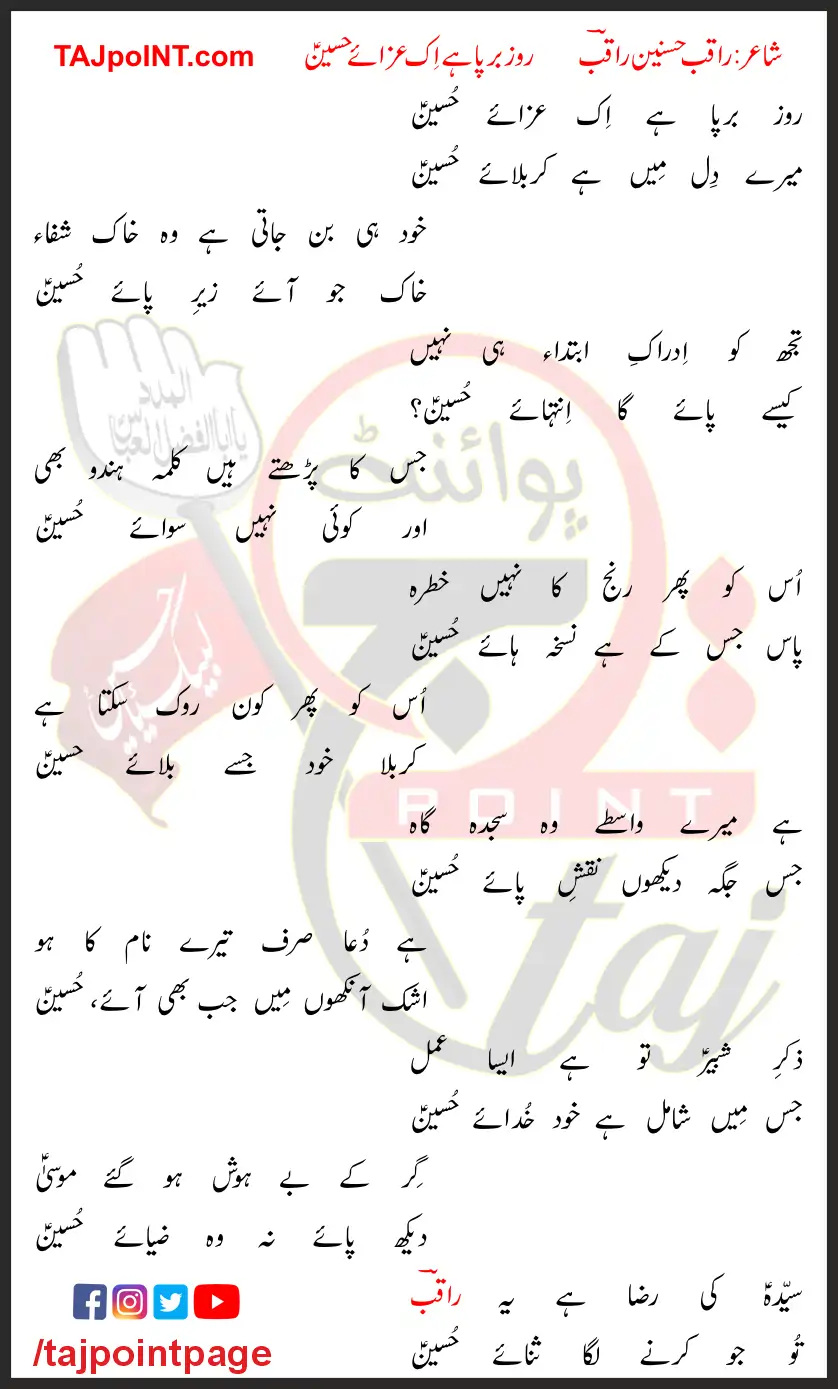 شاعر: راقب حسنین راقبؔ روز برپا ہے اِک عزائے حسینؑ TAJpoINT.com
روز برپا ہے اِک عزائے حُسینؑ
میرے دِل مِیں ہے کربلائے حُسینؑ
خود ہی بن جاتی ہے وہ خاک شفاء
خاک جو آئے زیرِ پائے حُسینؑ
تجھ کو اِدراکِ ابتداء ہی نہیں
کیسے پائے گا اِنتہائے حُسینؑ؟
جس کا پڑھتے ہیں کلمہ ہندو بھی
اور کوئی نہیں سوائے حُسینؑ
اُس کو پھر رنج کا نہیں خطرہ
پاس جس کے ہے نسخہ ہائے حُسینؑ
اُس کو پھر کون روک سکتا ہے
کربلا خود جسے بلائے حسینؑ
ہے میرے واسطے وہ سجدہ گاہ
جس جگہ دیکھوں نقشِ پائے حُسینؑ
ہے دُعا صرف تیرے نام کا ہو
اشک آنکھوں مِیں جب بھی آئے، حُسینؑ
ذکرِ شبیرؑ تو ہے ایسا عمل
جس مِیں شامل ہے خود خُدائے حُسینؑ
گِر کے بے ہوش ہو گئے موسیٰؑ
دیکھ پائے نہ وہ ضیائے حُسینؑ
سیّدہؑ کی رضا ہے یہ راقبؔ
تُو جو کرنے لگا ثنائے حُسینؑ
/tajpointpage
پوائنٹ
تاج
POINT
taj
لبیک یا حسینؑ
المدد
یا اباالفضل العباس